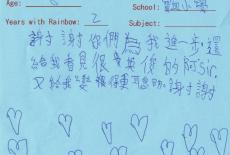 Age:
School:
Years with Rainbow: 2
Subject:
謝謝你們為我進步還
給我看見很英俊的阿Sir.
又給我變操得更聰明.謝謝